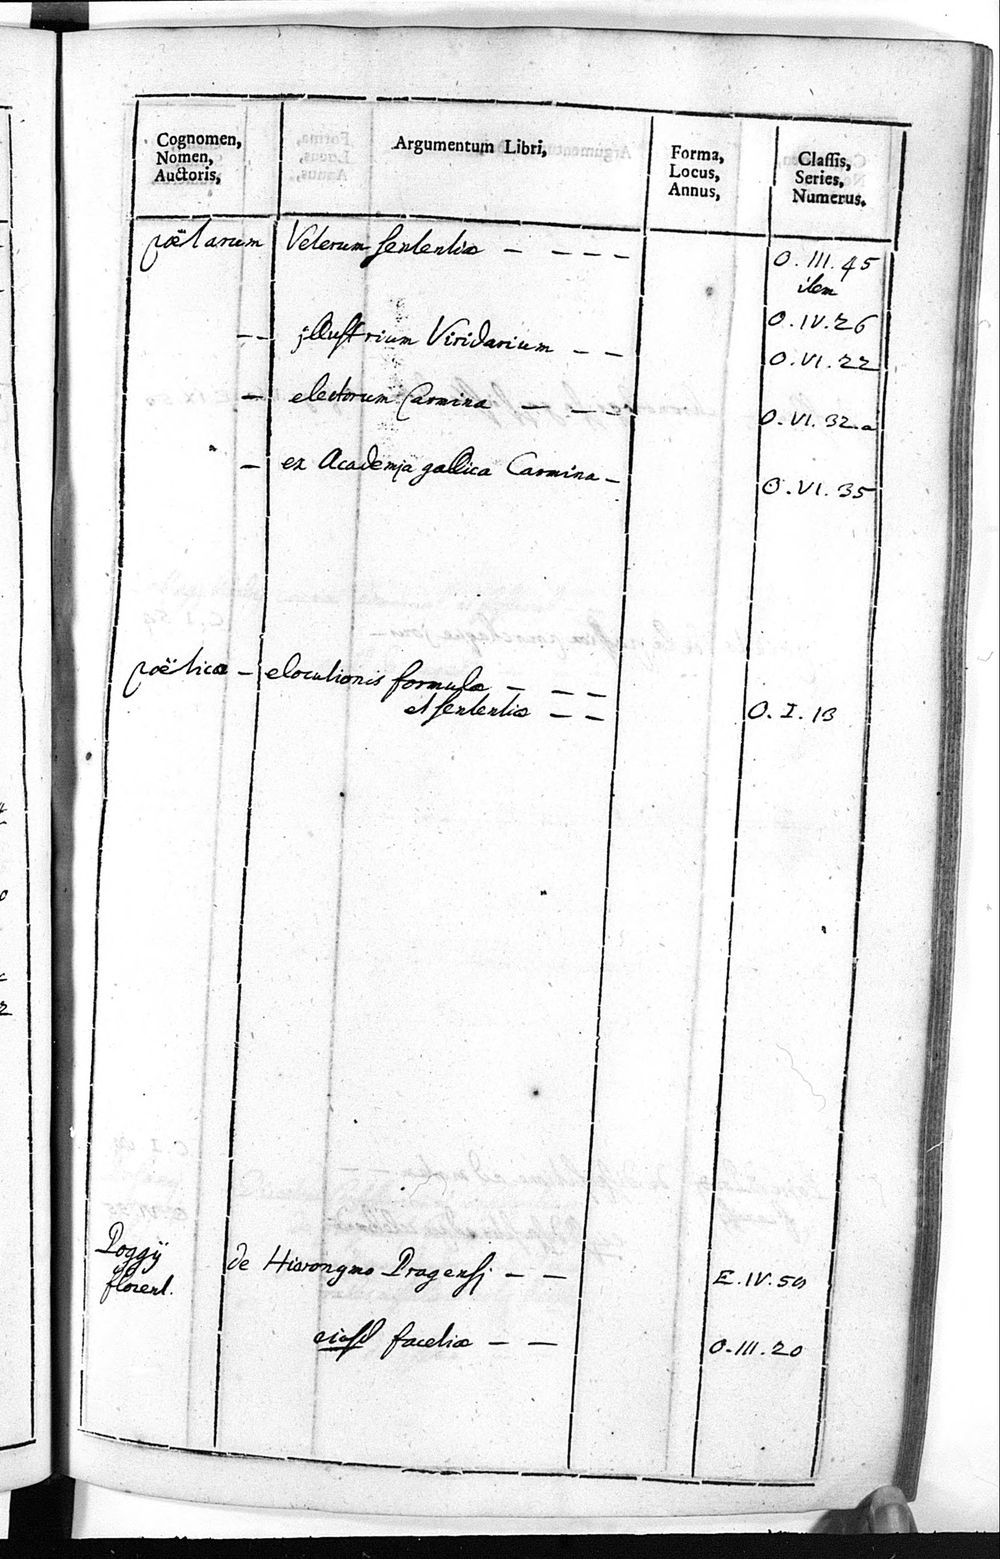 Cognomen,
Nomen,
Auctoris,
Argumentum Libri,
Forma,
Locus,
Annus,
Classis,
Series,
Numerus.
poëtarum Veterum sententiæ — — — — O. III. 45
item
O. IV. 26
— — jllustrium Viridarium — — O. VI. 22
— electorum Carmina — — — O. VI. 32.a
— ex Academja gallica Carmina — O. VI. 35
poëticæ — elocutionis formulæ — — —
et sententiæ — — O. I. 13
Poggÿ de Hieronymo Pragensj — — E. IV. 59
florent.
eiusd facetiæ — — O. III. 20